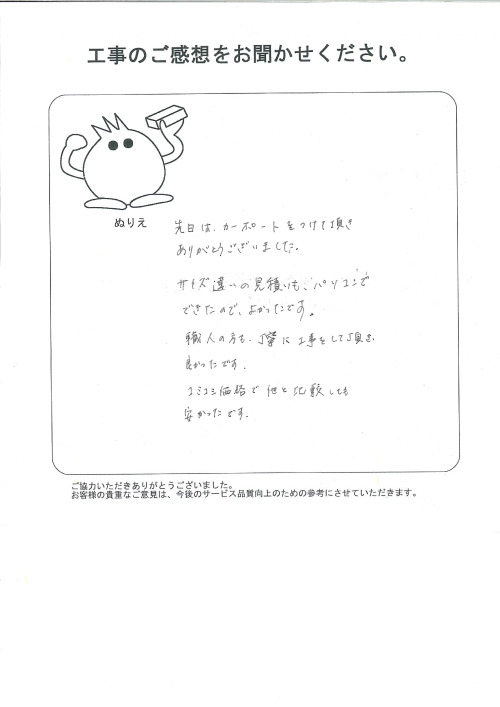 工事のご感想をお聞かせください。
ぬりえ
先日は、カーポートをつけて頂き
ありがとうございました。
サイズ違いの見積りも、パソコンで
できたので、よかったです。
職人の方も、丁寧に工事をして頂き、
良かったです。
コミコミ価格で他と比較しても
安かったです。
ご協力いただきありがとうございました。
お客様の貴重なご意見は、今後のサービス品質向上のための参考にさせていただきます。